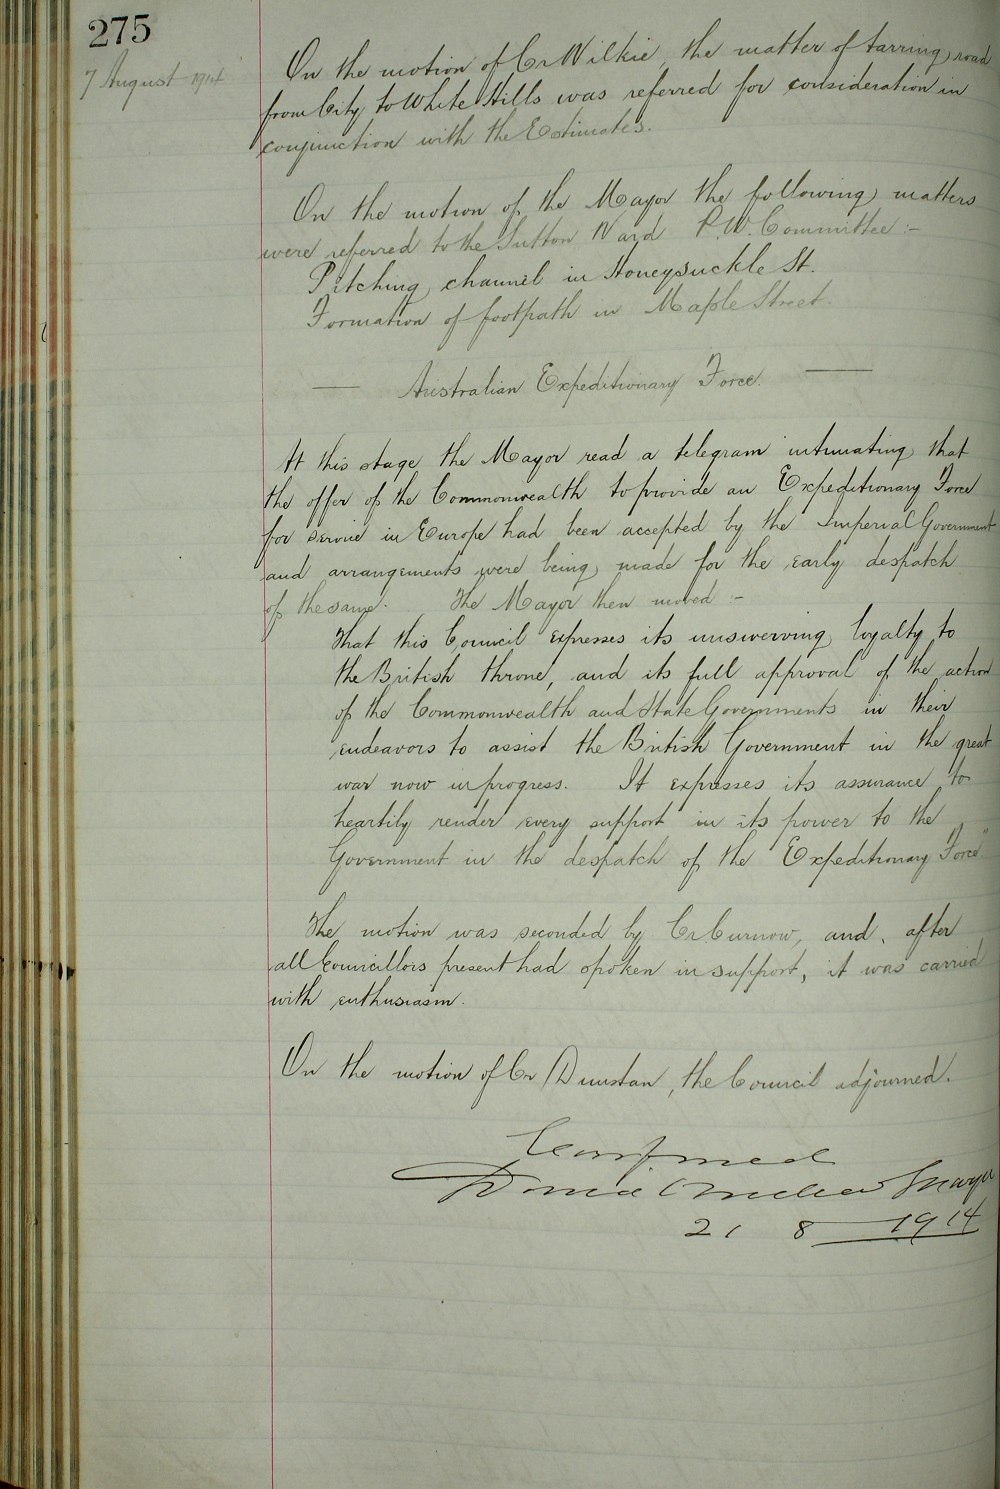 275
7 August 1914
On the motion of Cr Wilkie, the matter of tarring road
from City to White Hills was referred for consideration in
conjunction with the Estimates.
On the motion of the Mayor the following matters
were referred to the Sutton Ward P.W. Committee :-
Pitching channel in Honeysuckle St.
Formation of footpath in Maple Street.
Australian Expeditionary Force.
At this stage the Mayor read a telegram intimating that
the offer of the Commonwealth to provide an Expeditionary Force
for service in Europe had been accepted by the Imperial Government
and arrangements were being made for the early despatch
of the same. The Mayor then moved :-
That this Council expresses its unswerving loyalty to
the British throne, and its full approval of the action
of the Commonwealth and State Governments in their
endeavors to assist the British Government in the great
war now in progress. It expresses its assurance to
heartily render every support in its power to the
Government in the despatch of the Expeditionary Force"
The motion was seconded by Cr Curnow, and, after
all Councillors present had spoken in support, it was carried
with enthusiasm.
On the motion of Cr Dunstan, the Council adjourned.
Confirmed
Mayor
21 8 1914